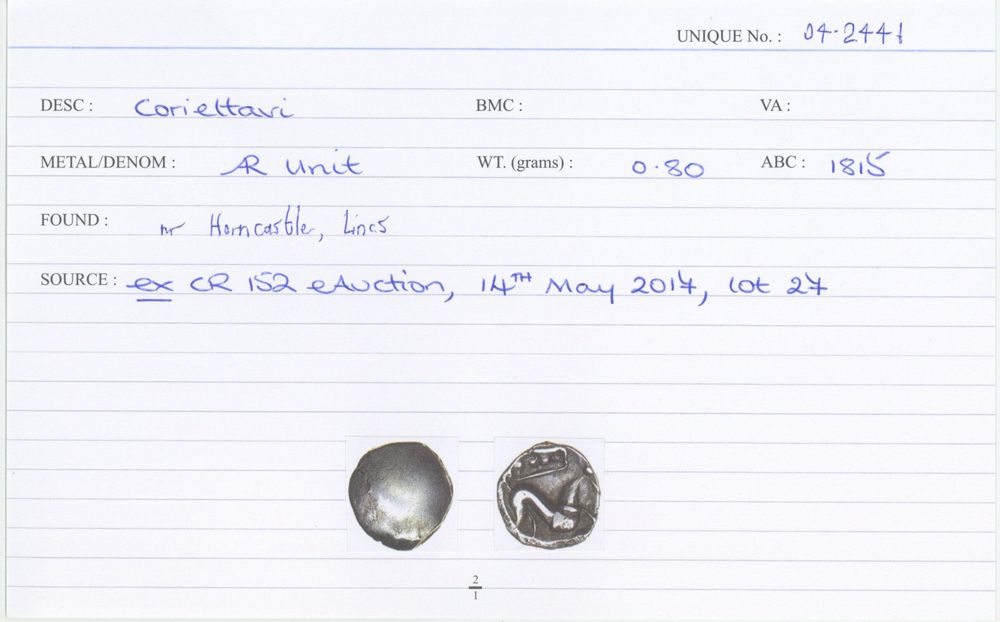 UNIQUE No. : 04-2441
DESC : Corieltavi BMC : VA :
METAL/DENOM : AR Unit WT. (grams) : 0.80 ABC : 1815
FOUND : nr Horncastle, Lincs
SOURCE : ex CR 152 eAuction, 14TH May 2017, lot 27
2
1